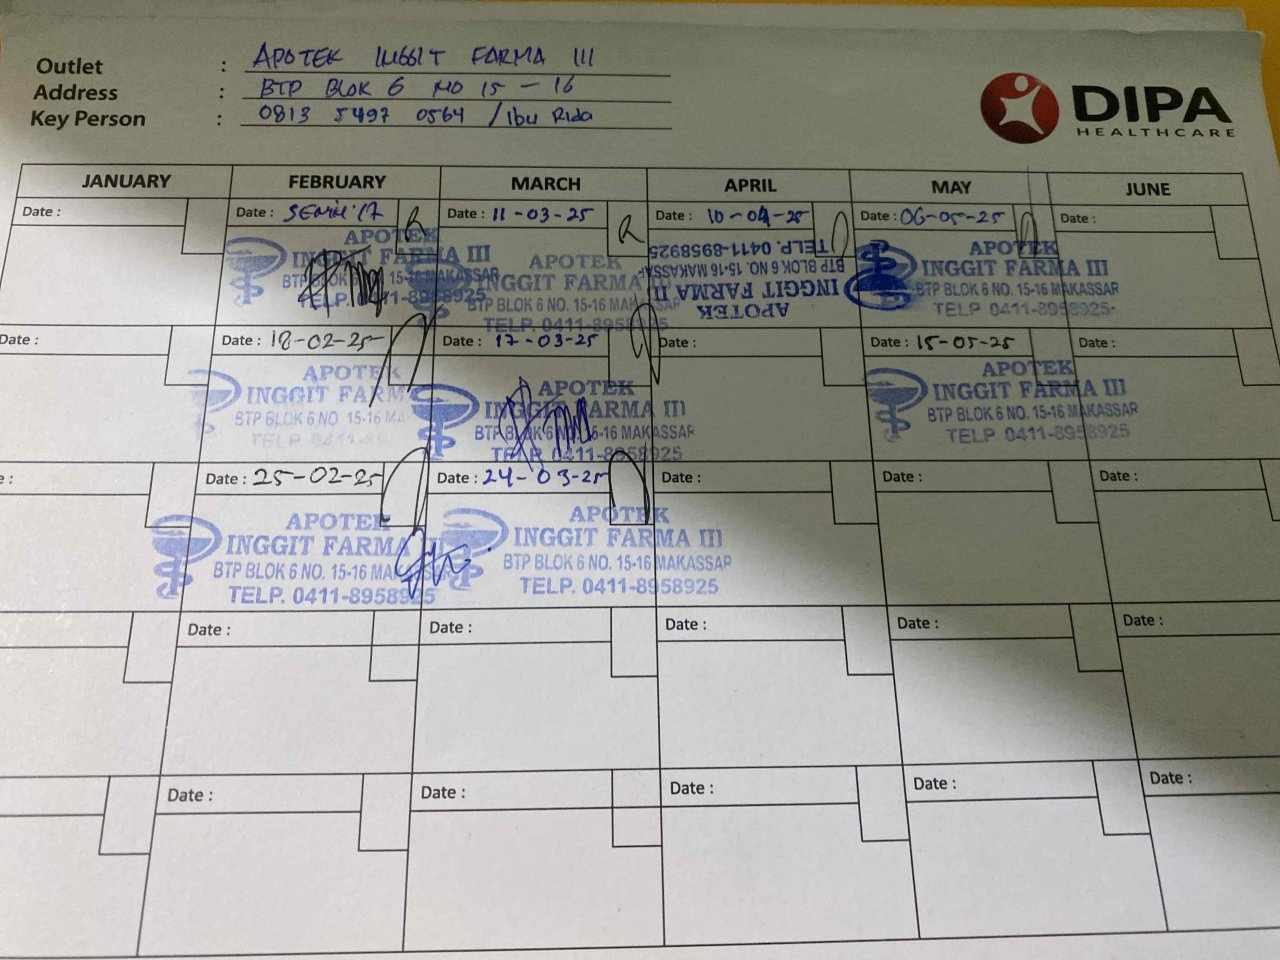 Outlet : APOTEK INGGIT FARMA III
Address : BTP BLOK 6 NO 15 - 16
Key Person : 0813 5497 0564 / Ibu Rida
DIPA
HEALTHCARE
JANUARY FEBRUARY MARCH APRIL MAY JUNE
Date : Date : Date : 11-03-25 Date : 10-04-25 Date : 06-05-25 Date :
APOTEK
INGGIT FARMA III
BTP BLOK 6 NO. 15-16 MAKASSAR
TELP. 0411-8958925
APOTEK
INGGIT FARMA
BTP BLOK 6 NO. 15-16 MAKASSAR
TELP. 0411-8958925
APOTEK
INGGIT FARMA II
BTP BLOK 6 NO. 15-16 MAKASSAR
TELP. 0411-8958925
APOTEK
INGGIT FARMA III
BTP BLOK 6 NO. 15-16 MAKASSAR
TELP. 0411-8958925
Date : Date : 18-02-25 Date : 17-03-25 Date : Date : 15-05-25 Date :
APOTEK
INGGIT FARM
BTP BLOK 6 NO. 15-16 MA
TELP. 0411-89
APOTEK
INGGIT FARMA III
BTP BLOK 6 NO. 15-16 MAKASSAR
TELP. 0411-8958925
APOTEK
INGGIT FARMA III
BTP BLOK 6 NO. 15-16 MAKASSAR
TELP. 0411-8958925
Date : 25-02-25 Date : 24-03-25 Date : Date : Date :
APOTEK
INGGIT FARMA III
BTP BLOK 6 NO. 15-16 MAKASSAR
TELP. 0411-8958925
APOTEK
INGGIT FARMA III
BTP BLOK 6 NO. 15-16 MAKASSAR
TELP. 0411-8958925
Date : Date : Date : Date : Date :
Date : Date : Date : Date : Date :